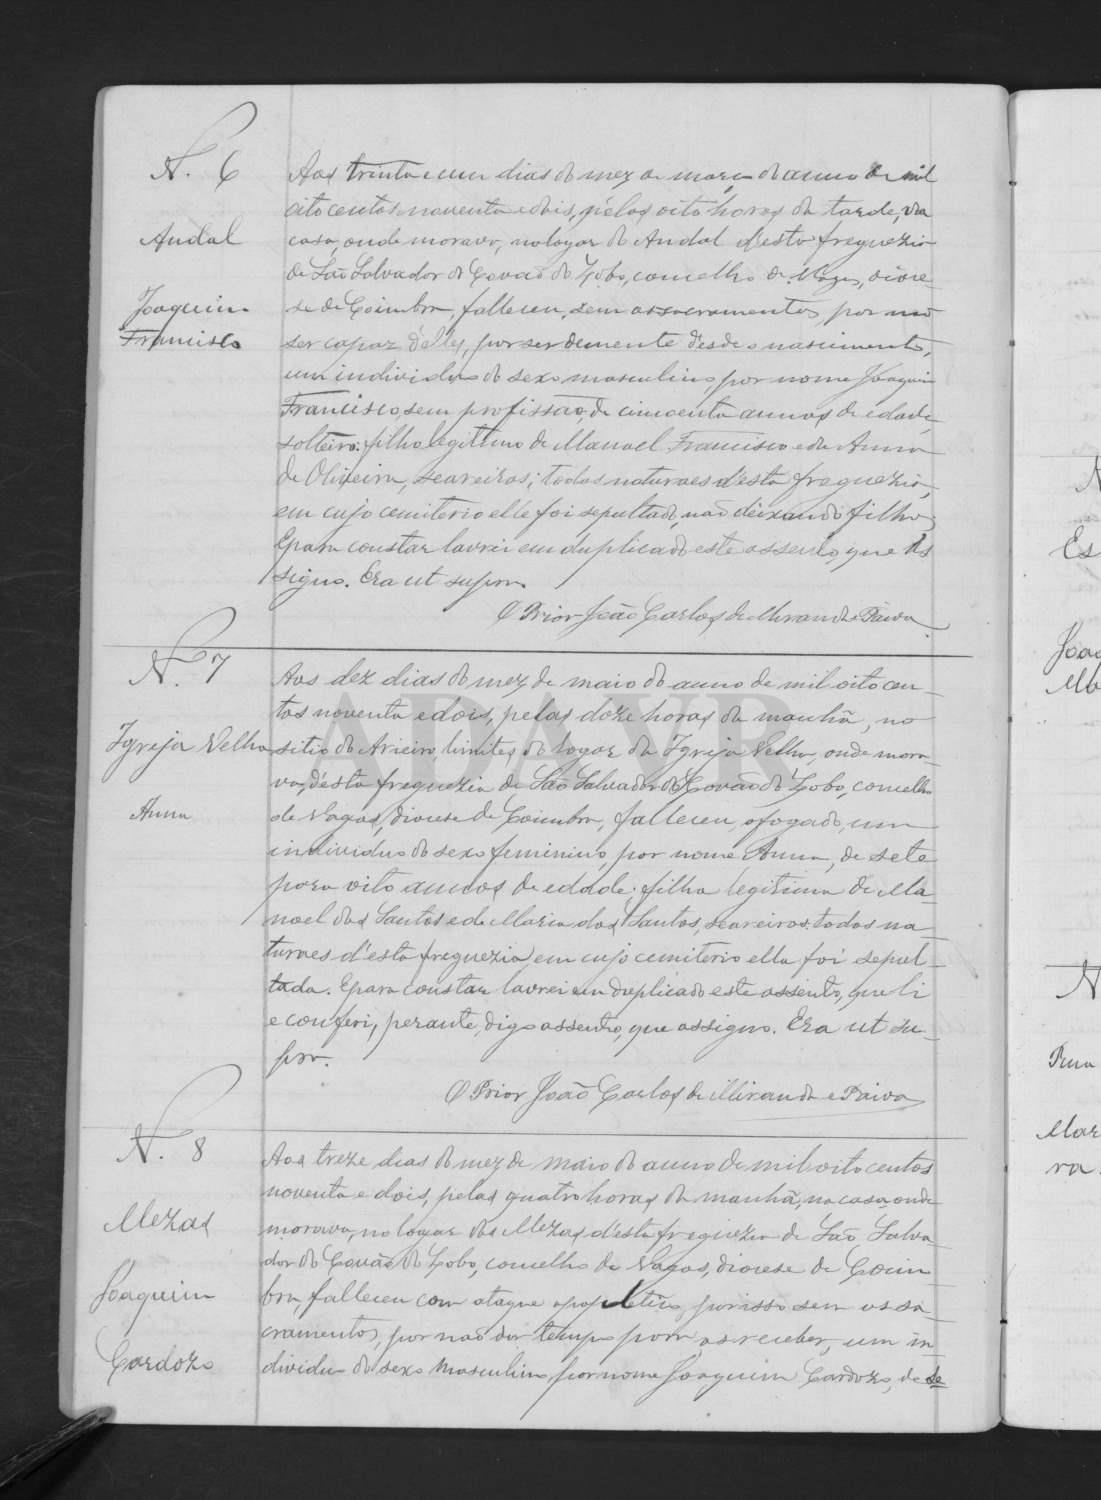 N. 6
Andal
Joaquim
Francisco
Aos trinta e um dias do mez de março do anno de mil
oito centos noventa e dois, pelas oito horas da tarde, na
casa, onde morava, no logar do Andal d'esta freguezia
de São Salvador do Covão do Lobo, concelho de Vagos, dioce
se de Coimbra, falleceu, sem os sacramentos, por não
ser capaz d'elles, por ser demente desde o nascimento,
um individuo do sexo masculino, por nome Joaquim
Francisco, sem profissão, de cincoenta annos de edade,
solteiro: filho legitimo de Manoel Francisco e de Anna
de Oliveira, seareiros; todos naturaes d'esta freguezia,
em cujo cemiterio elle foi sepultado, não deixando filhos.
E para constar lavrei em duplicado este assento, que as
signo. Era ut supra.
O Prior João Carlos de Miranda e Paiva
N. 7
Igreja Velha
Anna
Aos dez dias do mez de maio do anno de mil oito cen-
tos noventa e dois, pelas doze horas da manhã, no
sitio do Arieiro, limites do logar da Igreja Velha, onde mora-
va, d'esta freguezia de São Salvador do Covão do Lobo, concelho
de Vagos, diocese de Coimbra, falleceu, afogado, um
individuo do sexo feminino, por nome Anna, de sete
para oito annos de edade; filha legitima de Ma-
noel dos Santos e de Maria dos Santos, seareiros: todos na-
turaes d'esta freguezia, em cujo cemiterio ella foi sepul-
tada. E para constar lavrei em duplicado este assento, que li
e conferi, perante, digo assento, que assigno. Era ut su-
pra.
O Prior João Carlos de Miranda e Paiva
N. 8
Mezas
Joaquim
Cardozo
Aos treze dias do mez de maio do anno de mil oito centos
noventa e dois, pelas quatro horas da manhã, na casa, onde
morava, no logar das Mezas d'esta freguezia de São Salva-
dor do Covão do Lobo, concelho de Vagos, diocese de Coim
bra, falleceu com ataque apopletico, por isso sem os sa-
cramentos, por não dar tempo para os receber, um in-
dividuo do sexo masculino, por nome Joaquim Cardozo, de se
ADAVR
N
Es
Joaq
Ma
N
Anna
Mar
ra